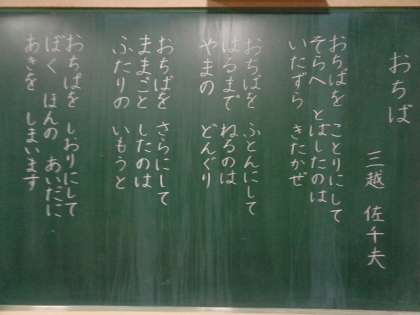 おちば
三越 佐千夫
おちばを ことりにして
そらへ とばしたのは
いたずら きたかぜ
おちばを ふとんにして
はるまで ねるのは
やまの どんぐり
おちばを さらにして
ままごと したのは
ふたりの いもうと
おちばを しおりにして
ぼく ほんの あいだに
あきを しまいます